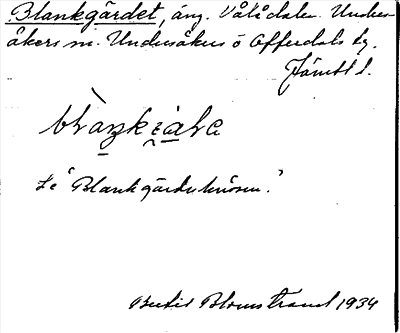 Blankgärdet, äng. Vålådalen. Unders
åkers sn. Undersåkers o Offerdals tg.
Jämtl l.
Se "Blankgärdeknösen."
Bertil Blomstrand 1934